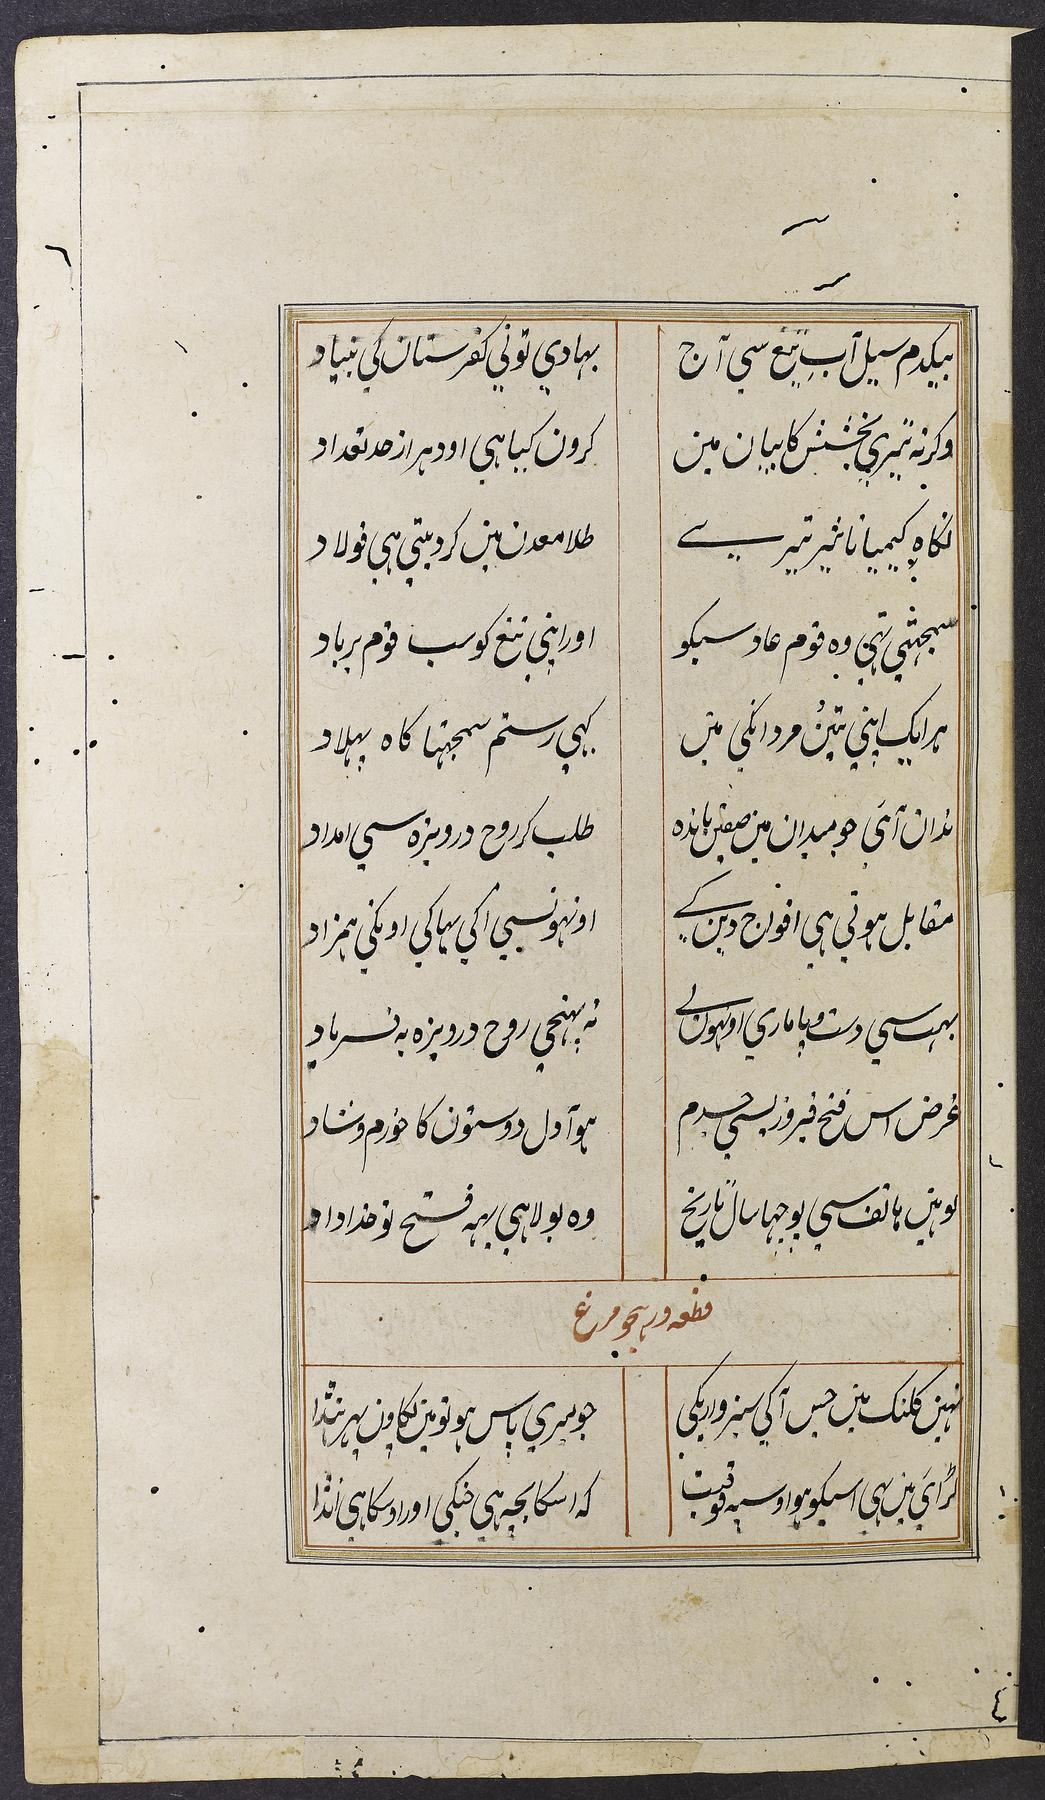 بیکدم سیل آبِ تیغ سي آج بہادي توني کفرستان کي بنیاد
وکرنه تیري بخشش کا بیان مین کرون کیا ہي اودہر از حد تعداد
نکاهِ کیمیا تاثیر تیرے طلا معدن مین کر دیتي ہي فولاد
سمجہتي تہي وه قوم عاد سبکو اور اپني تیغ کو سب قوم برباد
ہر ایک اپني تیئن مردانکي مین کہي رستم سمجہتا کاه پہلاد
ندان آئي جو میدان مین صفین بانده طلب کر روح درویزه سي امداد
مقابل ہوتي ہي افواج دین کے اونہونسي آکي بہاکي اونکي ہمزاد
بہت سي دست و پا ماري اونہون نے نه پہنچي روح درویزه به فریاد
غرض اس فتح فیروزیسي جسدم ہوا دل دوستون کا خورم و شاد
توہین ہاتف سي پوچہا سال تاریخ وه بولا ہي یہه فتح نو خداداد
قطعه در ہجو مرغ
نہین کلنک مین جس آکي سبزوار یکي جو میري پاس ہو تو مین لکاون پہر ہنڈا
کڑائي مین بہي اسیکو ہو اوسپه فوقیت که اسکا بچه ہي خنکي اور اوسکا ہي انڈا